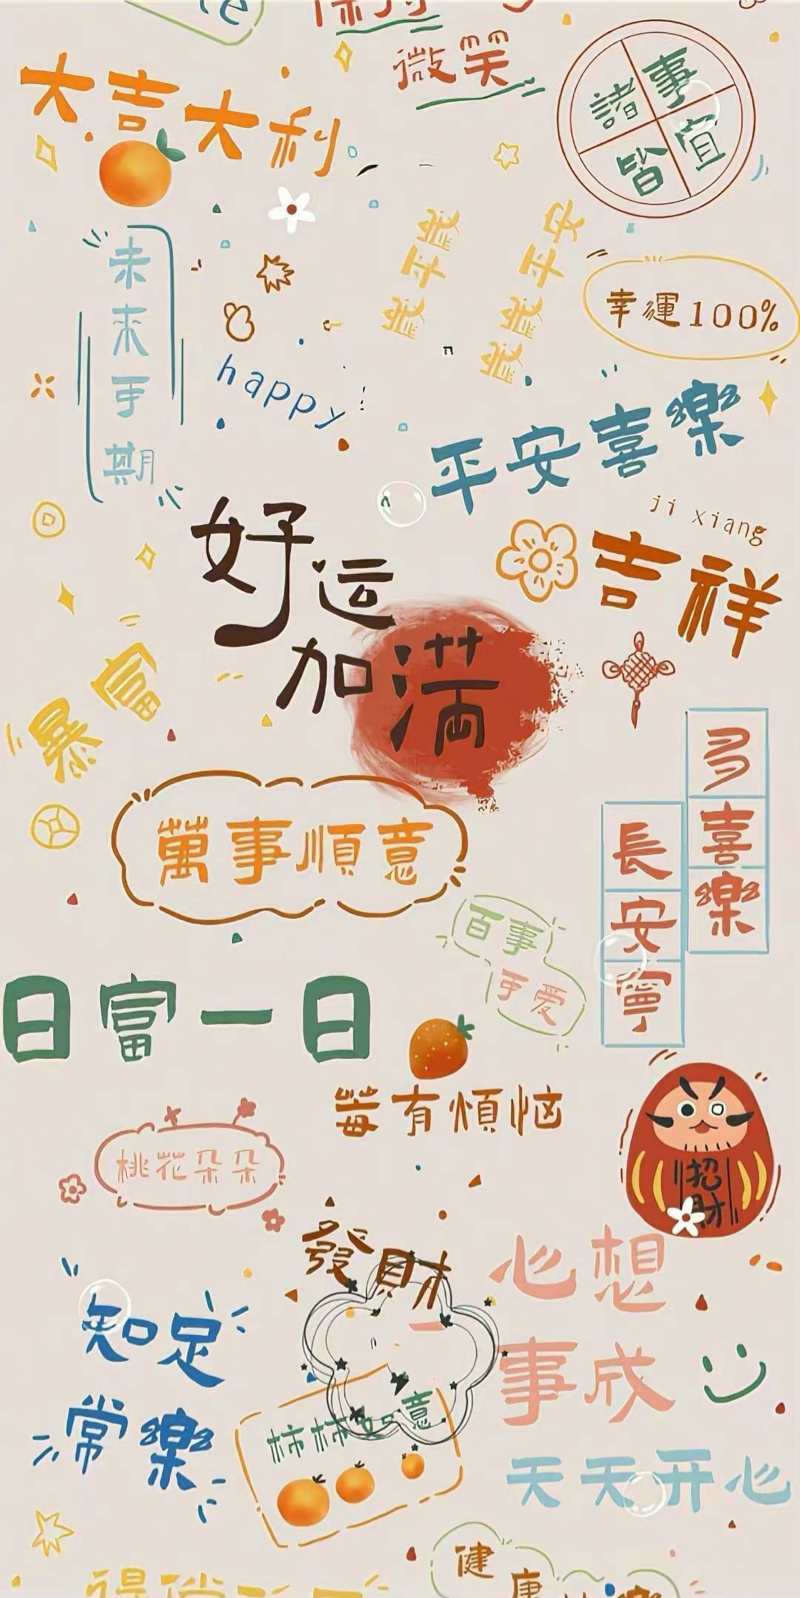 微笑
大吉大利
諸事
皆宜
未来可期
歲平歲
歲歲平安
幸運100%
happy
平安喜樂
ji xiang
吉祥
好运
加满
暴富
多喜樂
長安寧
萬事順意
百事
可爱
日富一日
莓有煩恼
桃花朵朵
招財
發財
心想
事成
知足
常樂
柿柿如意
天天开心
健康